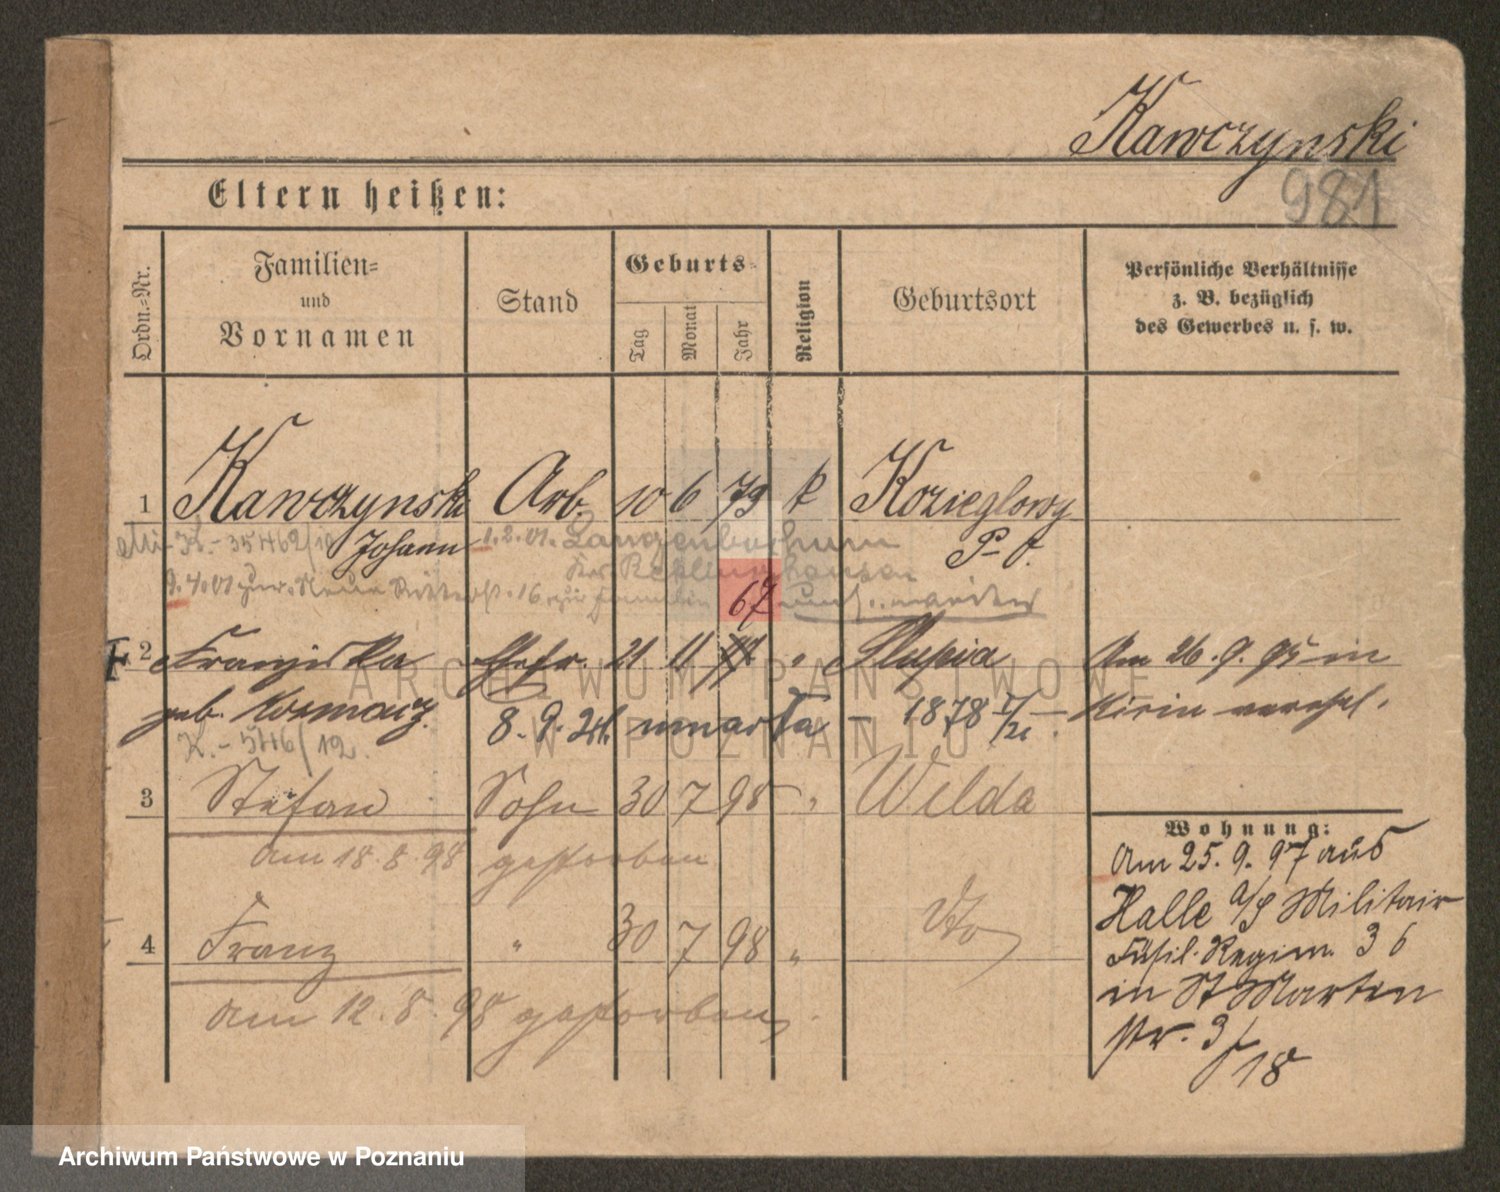 Kawczynski
981
Eltern heißen:
Ordn.-Nr.
Familien-
und
Vornamen
Stand
Geburts-
Tag
Monat
Jahr
Religion
Geburtsort
Persönliche Verhältnisse
z. B. bezüglich
des Gewerbes u. s. w.
1 Kawczynski Arb. 10 6 79 k Kozieglowy
K.- 35462/19 Johann 1.2.01. Langenbochum P- O.
Kr. Recklinghausen
67
2 Franziska Ehefr. 21 11 Slupia Am 26.9.95 in
geb. 8.9. 1878 verehel.
K.- 546/12.
3 Stefan Sohn 30 7 98 " Wilda
am 18.8.98 gestorben
4 Franz " 30 7 98 " dto
am 12.8.98 gestorben.
Wohnung:
Am 25.9.97 aus
Halle a/S Militair
Füsil. Regim. 36
in St Martin
str. 3/18
ARCHIWUM PAŃSTWOWE
W POZNANIU
Archiwum Państwowe w Poznaniu